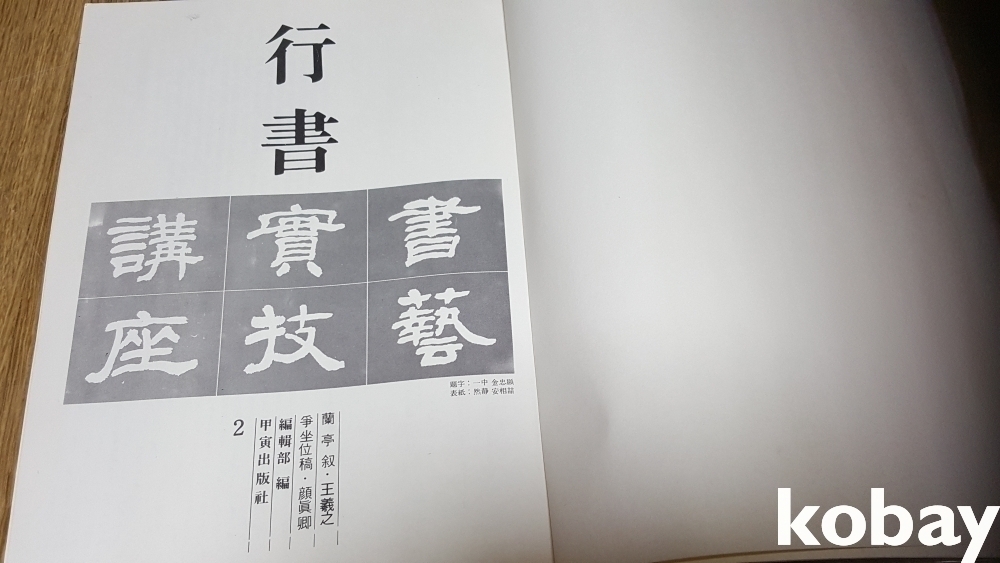 行書
書藝
實技
講座
題字：一中 金忠顯
表紙：然靜 安相喆
蘭亭叙·王羲之
爭坐位稿·顔眞卿
編輯部 編
甲寅出版社
2
kobay